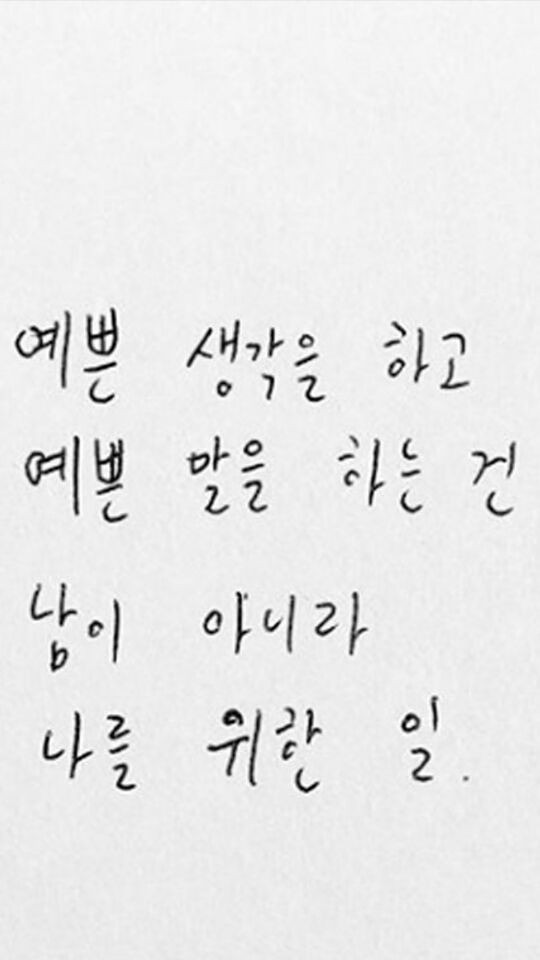 예쁜 생각을 하고
예쁜 말을 하는 건
남이 아니라
나를 위한 일.